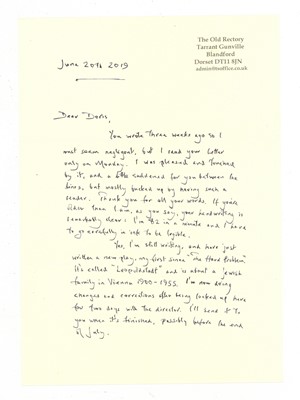 The Old Rectory
Tarrant Gunville
Blandford
Dorset DT11 8JN
June 20th 2019
Dear Doris,
You wrote three weeks ago so I
must seem negligent, but I read your letter
only on Monday. I was pleased and touched
by it, and a little saddened for you between the
lines, but mostly bucked up by having such a
reader. Thank you for all your words. If you're
older than I am, as you say, your handwriting is
wonderfully clear: I'm 82 in a minute and I have
to go carefully to be legible.
Yes, I'm still writing, and have just
written a new play, my first since "The Hard Problem".
It's called "Leopoldstadt" and is about a Jewish
family in Vienna 1900-1955. I'm now doing
changes and corrections after being locked up here
for two days with the director. I'll send it to
you when it's finished, possibly before the end
of July.